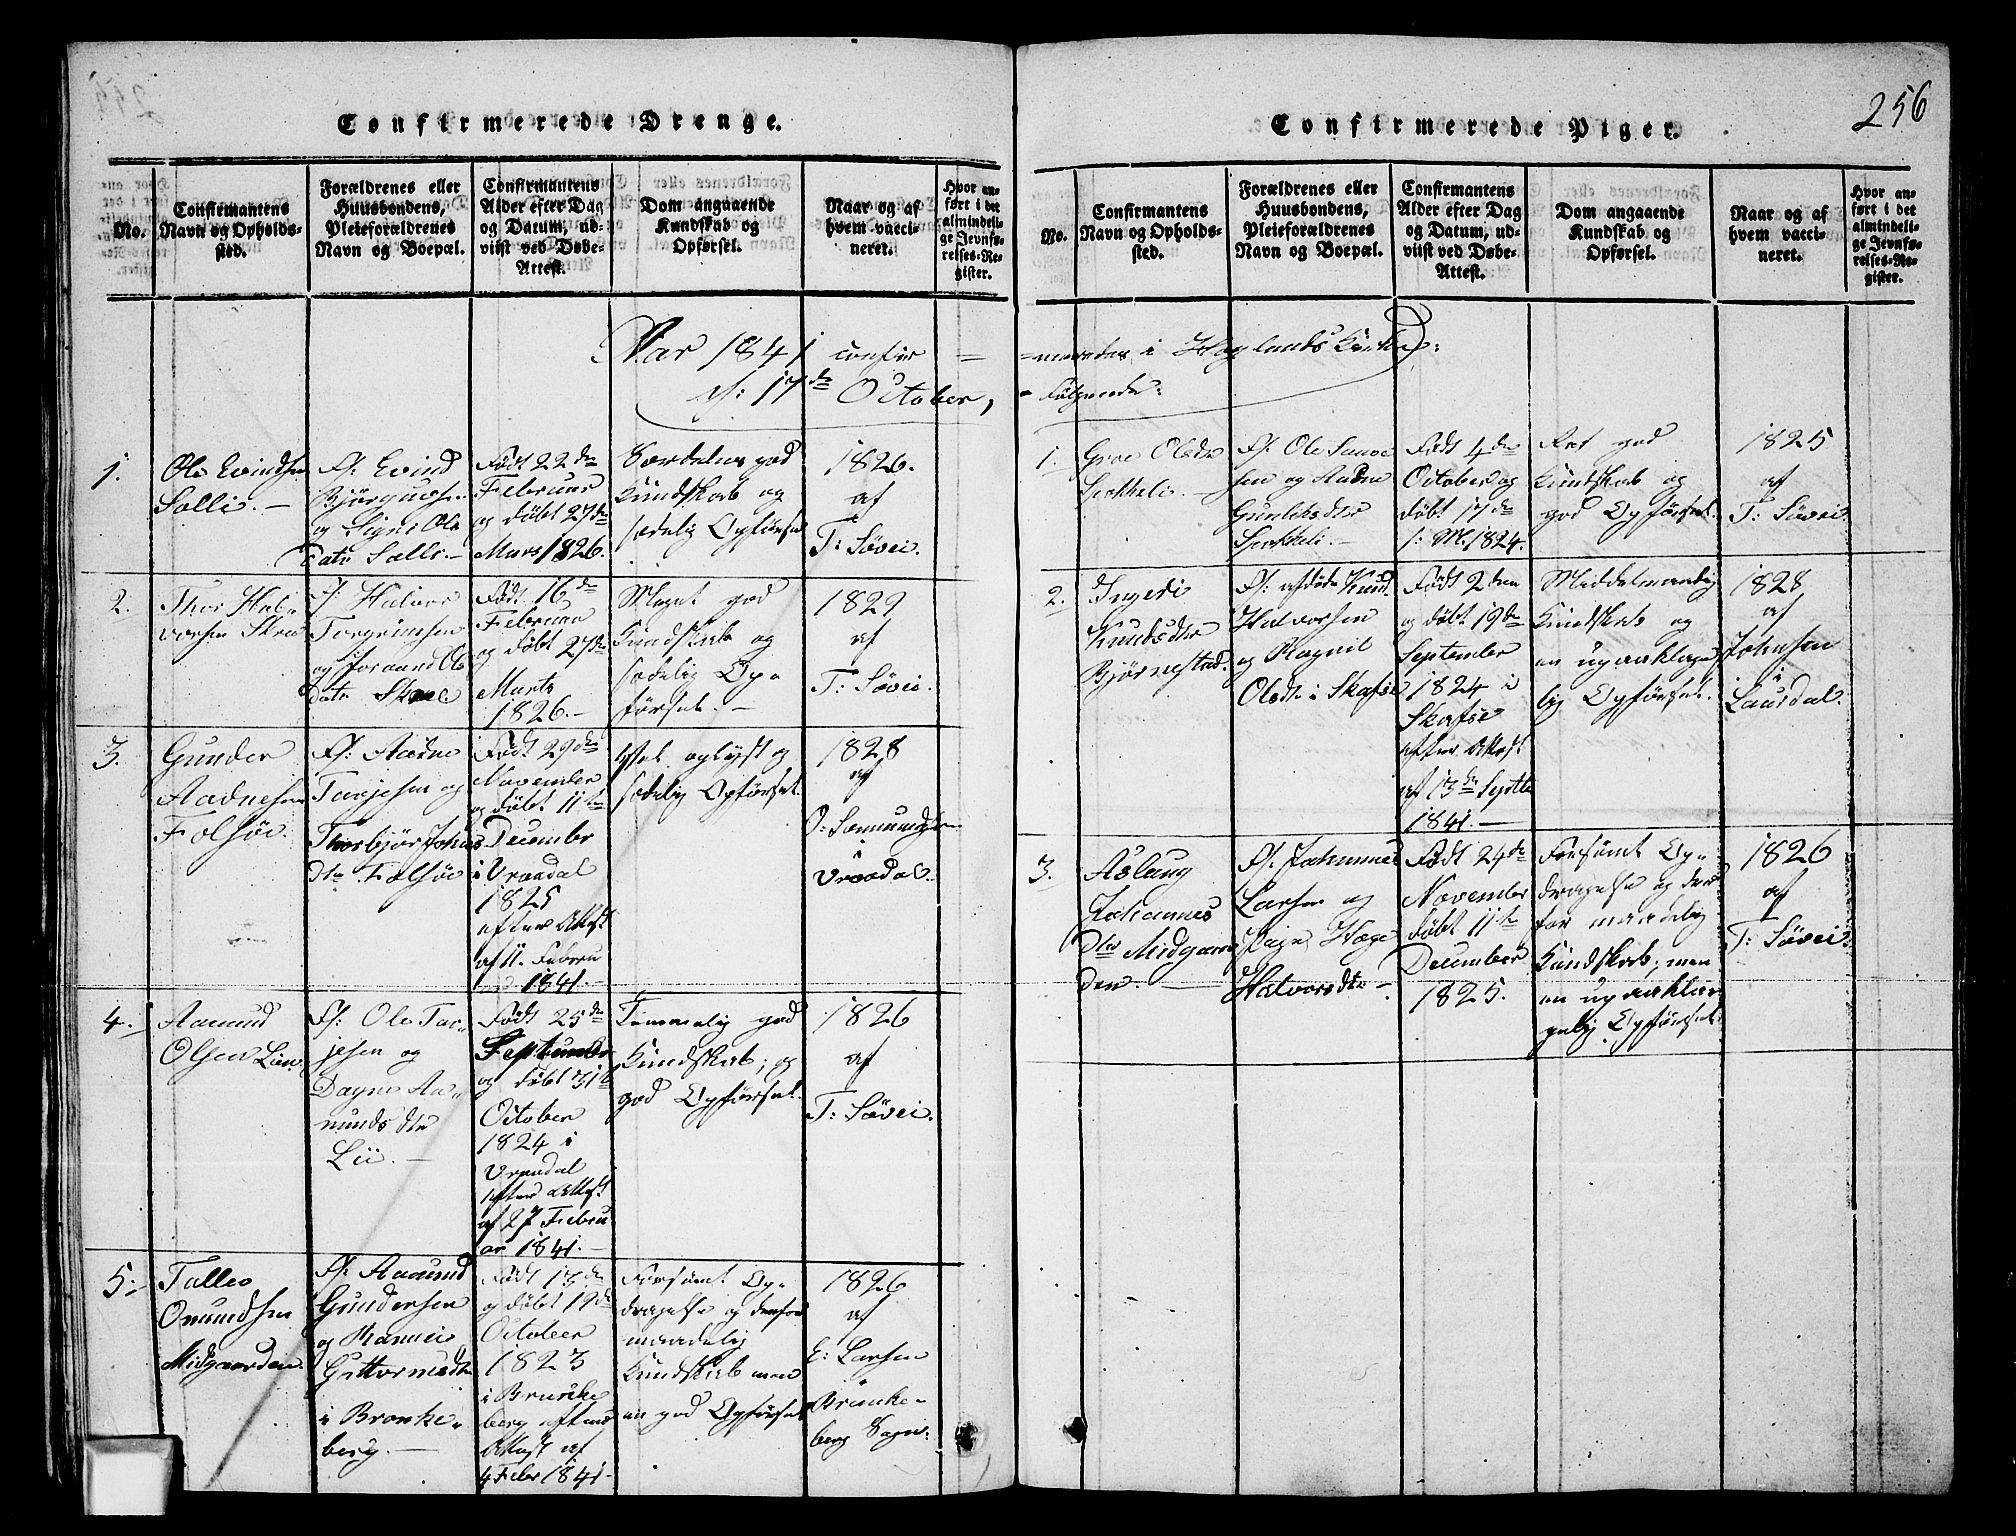 256
Confirmerede Drenge.
No.
Confirmantens
Navn og Opholds-
sted.
Forældrenes eller
Huusbondens,
Pleieforældrenes
Navn og Boepæl.
Confirmantens
Alder efter Dag
og Datum, ud-
viist ved Døbe-
Attest.
Dom angaaende
Kundskab og
Opførsel.
Naar og af
hvem vacci-
neret.
Hvor an-
ført i det
almindeli-
ge Jevnfø-
relses-Re-
gister.
Aar 1841 confir =
d: 17de October,
1.
Ole Evindsen
Solli. -
F: Evind
Bjørgufsen
og Signe Ols
datr Solli. -
Født 22de
Februar
og døbt 27de
Marts 1826.
Særdeles god
Kundskab og
sædelig Opførsel
1826.
af
T: Søvei.
2.
Thor Hal-
vorsen Skree
F: Halvor
Torgrimsen
og Joraand Ols
datr Skree
Født 16de
Februar
og døbt 27de
Marts
1826. -
Meget god
Kundskab og
sædelig Op-
førsel. -
1829
af
T: Søvei.
3.
Gunder
Aadnesen
Folsøe
F: Aadne
Tarjesen og
Thorbjør Johns
dtr Folsøe
Født 29de
November
og døbt 11te
December
i Vraadal
1825
efter Attest
af 11. Febru
ar 1841. -
Vel oplyst og
sædelig Opførsel.
1828
af
O: Somundsen
i
Vraadal.
4.
Aamund
Olsen Lien
F: Ole Tar-
jesen og
Dagne Aa-
munds dtr
Lii. -
Født 25de
September
og døbt 31te
October
1824 i
Vraadal
efter Attest
af 27 Febru
ar 1841. -
Temmelig god
Kundskab, og
god Opførsel.
1826
af
T: Søvei.
5.
Tallev
Omundsen
Midgaarden
F: Aamund
Gundersen
og Ranvei
Guttormsdtr
i Brunke-
berg. -
Født 13de
og døbt 19de
October
1823
i Brunke
berg efter
Attest af
4 Febr 1841. -
Forsømt Op-
dragelse og derfor
maadelig
Kundskab men
en god Opførsel
1826
af
E: Larsen
Brunke-
berg Sogn.
Confirmerede Piger.
No.
Confirmantens
Navn og Opholds-
sted.
Forældrenes eller
Huusbondens,
Pleieforældrenes
Navn og Boepæl.
Confirmantens
Alder efter Dag
og Datum, ud-
viist ved Døbe-
Attest.
Dom angaaende
Kundskab og
Opførsel.
Naar og af
hvem vacci-
neret.
Hvor an-
ført i det
almindeli-
ge Jevnfø-
relses-Re-
gister.
=merede i Høylands Kirke:
= Følgende:
1.
Groe Olsdtr
F: Ole
sen og Aadne
Gunliksdtr
Født 4de
October og
døbt 17de
s: M. 1824.
Ret god
Kundskab og
god Opførsel.
1825
af
T: Søvei.
2.
Ingeri
Knudsdtr
Bjørnestad.
F: afdøde Knud
Halvorsen
og Ragnil
Olsdtr i Skafse
Født 2den
og døbt 19de
September
1824 i
Skafse
efter Attest
af 13de Septbr
1841. -
Middelmaadig
Kundskab og
en upaaklage
lig Opførsel.
1828
af
Johnsen
i
Laurdal.
3.
Aslaug
Johannes
dtr Midgaar
den. -
F: Johannes
Larsen og
Hæge
Halvorsdtr -
Født 24de
November
døbt 11te
December
1825.
Forsømt Op-
dragelse og der
for maadelig
Kundskab; men
en upaaklag-
gelig Opførsel.
1826
af
T: Søvei.